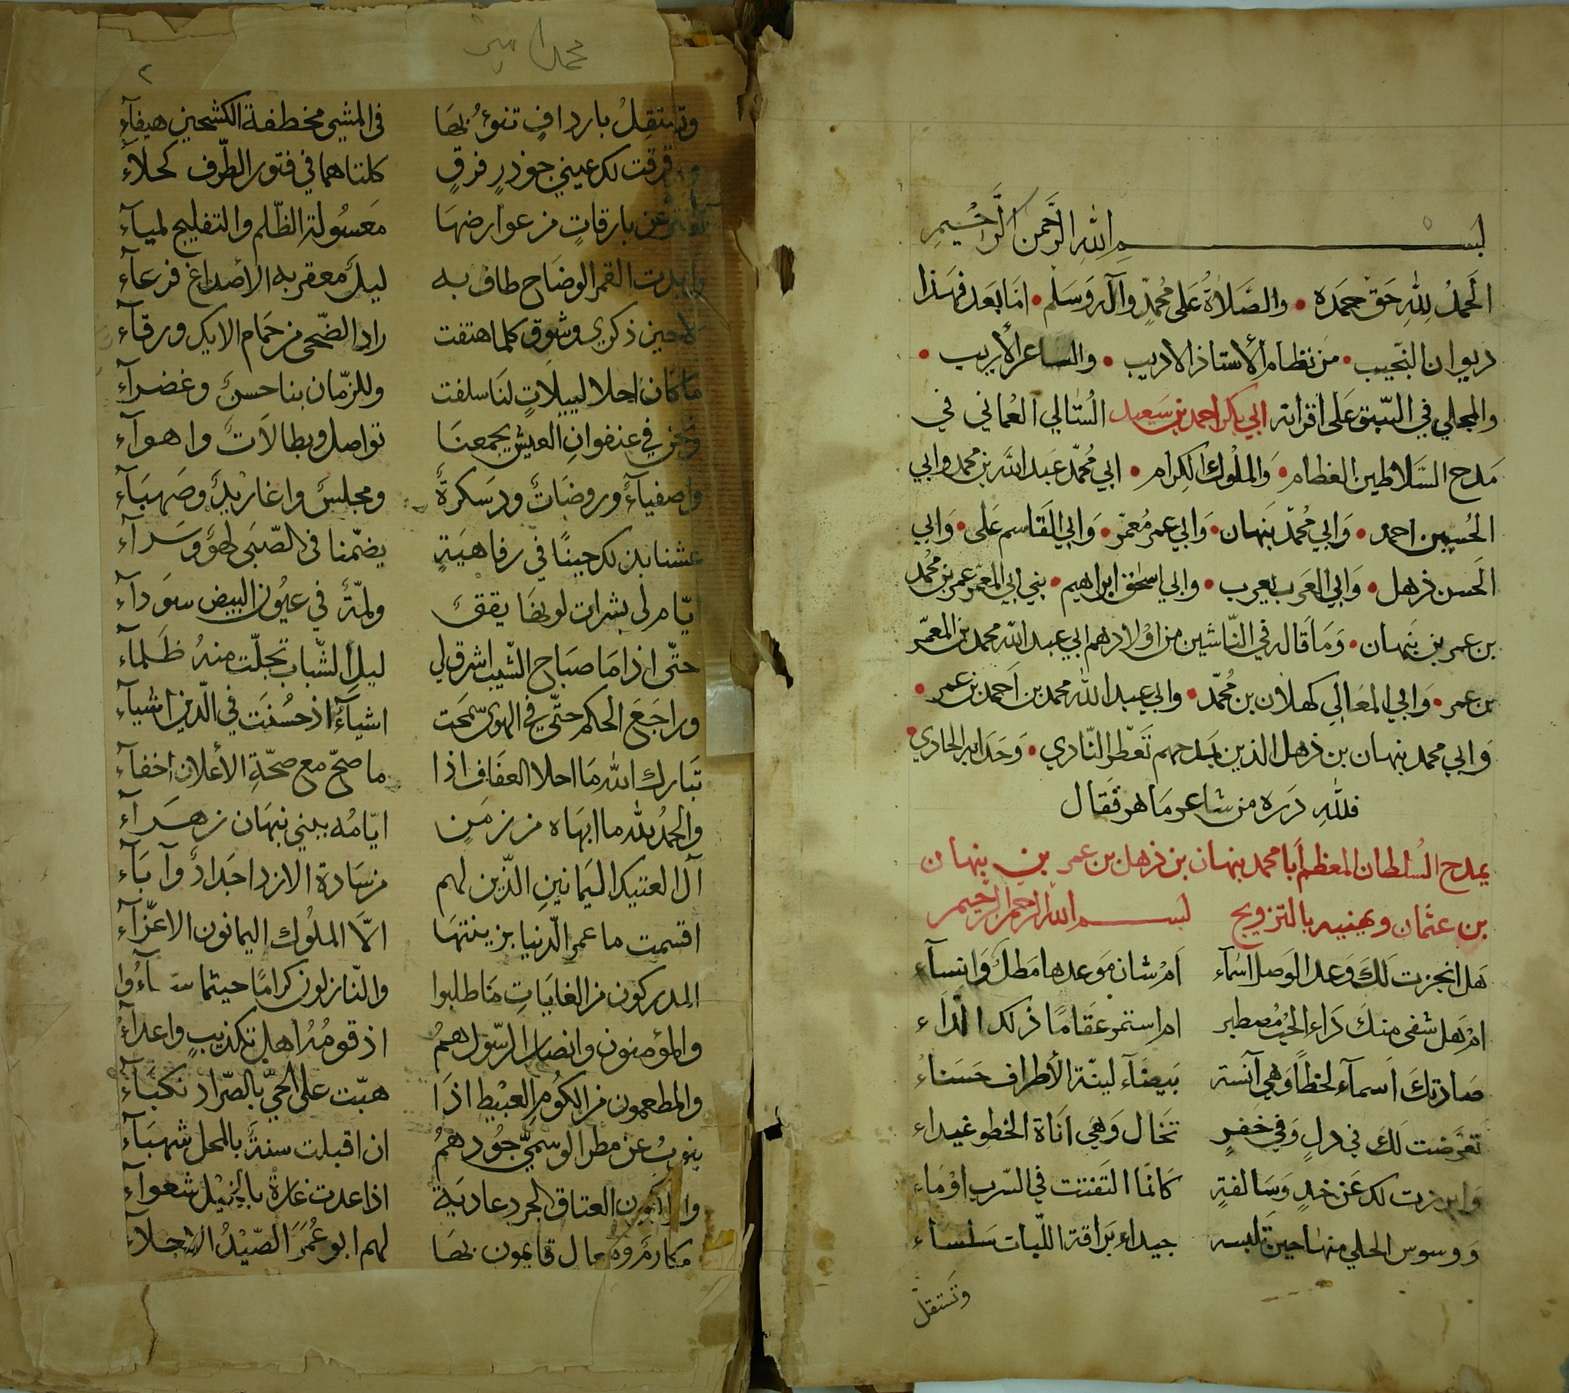 بسم الله الرحمن الرحيم
الحمدُ لِلّهِ حَقّ حمده • والصَّلاةُ عَلى محُمدٍ وآله وسَلم • امَا بَعد فهَذا
ديوان النجيب • من نظام الأستاذ الاديب • والشاعر الأريب •
والمجلي في السّبق عَلى اقرانه ابي بكر احمد بن سَعيد السُتالي العُماني في
مَدح السَلاطين العظام • وَالملوك الكرام • ابي محُمّد عَبد اللّه بن محمد وابي
الحُسين احمد • وَابي محُمّد نبهان • وَابي عمر مُعمّر • وَابي القَاسم عَلى • وَابي
الحَسن ذهل • وَابي العَرب يعرب • وابي اسحٰق ابراهيم • بني ابي المعمر عمر بن محُمد
بن عمر بن نبهان • وَمَا قاله في النّاشين من اولادهم ابي عبد اللّه محمد بن المعمّر
بن عمر • وَابي المعَالي كهلان بن محُمّد • وابي عبد اللّه محمد بن احَمد بن عمر •
وَابي محمد نبهان بن ذهل الذين بمدحهم تَعَطّر النّادي • وَحَدَا بهم الحادي •
فللهِ دَرّه من شاعر مَا هو فقَال
يمدح السُلطان المعظم أبا محمد نبهان بن ذهل بن عمر بن نبهان
بن عثمان ويهنيه بالتزويج بسم الله الرحمن الرحيم
هَل انجزت لَكَ وَعد الوَصل اسمآء امْ شان مَوعدها مَطلٌ وَانسآء
امْ هَل شفى منكَ دَاء الحُب مُصطبر ام استمر عقَامًا ذلك الدّاء
صَادتكَ اسمآء لحظاً وهي آنسة بَيضَآء لينّة الأطراف حَسنَاء
تعرّضت لَكَ في دلٍ وَفي خَفرٍ تختَال وَهي انَاة الخطو غيداء
وَابرزت لك عَن خدٍ وَسَالفةٍ كَانمّا التَفتت في السّرب ادْمَاء
وَوسوس الحلي منهَا حينَ تلبسه جيداء برَاقة اللّبات سَلسَاء
وتستقلّ
محمد
٢
وتستقِلُ باردافٍ تنوءُ بهَا في المشي مخطفة الكشحين هيفآء
ورقرقت لك عيني جوذرٍ فرقٍ كلتاهما في فتور الطّرف كحلاء
تفترّ عن بارقاتٍ من عوارضهَا مَعسُولة الظّلم والتفليج لميآء
وابدت القمر الوضّاح طاف به ليلٌ معقربه الأصداغ فرعآء
لاحين ذكرى وشوق كلما هتفت راد الضّحى من حمَام الايك ورقآء
مَا كانَ احلا لييلاتٍ لنَا سلفت وللزّمان بنا حسنٌ وغضرآء
ونحن في عنفوان العيش يجمعنَا تواصل وبطالاتٌ واهوآء
واصفيآءٌ وروضَاتٌ ودسكرةٌ ومجلسٌ واغاريدٌ وصَهبَآء
عشنا بذلك حينًا في رفاهيَةٍ يضمّنا في الصّبَى لهوٌ وسَرآء
ايّام لي بشرات لونهَا يققٌ ولمةٌ في عيُون البيض سوَدآء
حتّى اذا مَا صبَاح الشّيب اشرق لي ليلُ الشّباب تجلّت منهُ ظَلماء
وراجَعَ الحلم حتّى في الهوى سَمحَت اشيآءٌ اذ حسُنَت في الدّين اشيآء
تبَارك اللّه مَا احلا العفَاف اذا ما صحّ مع صحّةِ الأعلان اخفآء
والحمدُ للّه ما ابهَاه من زمَنٍ ايّامُه ببني نبهَان زهَرآء
آل العتيك اليمَانينِ الذّين لهم من سَادة الازد اجَدادٌ وآبَآء
اقسمت ما عمر الدّنيا بزينتهَا الاّ الملُوك اليمانون الاعزّآء
المدركون من الغايَاتِ مَا طلبوا والنّازلون كرامًا حيثما شَآءُوا
والمؤمنون وانصار الرّسول همُ اذ قومُهُ اهل تكذيبٍ واعدآء
والمطعمون من الكُومِ العبْيط اذَا هبّت على الحيّ بالصّراد نكبَآء
ينوبُ عن مطر الوسميّ جُودهمُ ان اقبلت سنةٌ بالمحل شهبَآء
العتاق الجرد عاديَة اذا عدت غارةٌ بالخيْل شعوآء
مكارمٌ وفعال قايمون بهَا لهم ابو عُمَرَ الصّيْدُ الاجلآء